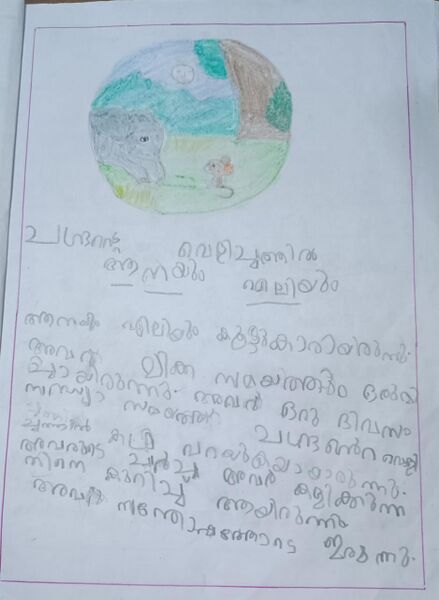 ചന്ദ്രന്റെ വെളിച്ചത്തിൽ
ആനയും എലിയും
ആനയും എലിയും കൂട്ടുകാരായിരുന്നു.
അവർ മിക്ക സമയത്തും ഒരുമി
ച്ചായിരുന്നു. അവർ ഒരു ദിവസം
സന്ധ്യാ സമയത്ത് ചന്ദ്രന്റെ വെളി
ച്ചത്തിൽ കഥ പറയുകയായിരുന്നു.
അവരുടെ ചർച്ച അവർ കളിക്കുന്ന
തിനെ കുറിച്ച് ആയിരുന്നു
അവർ സന്തോഷത്തോടെ ഇരുന്നു.